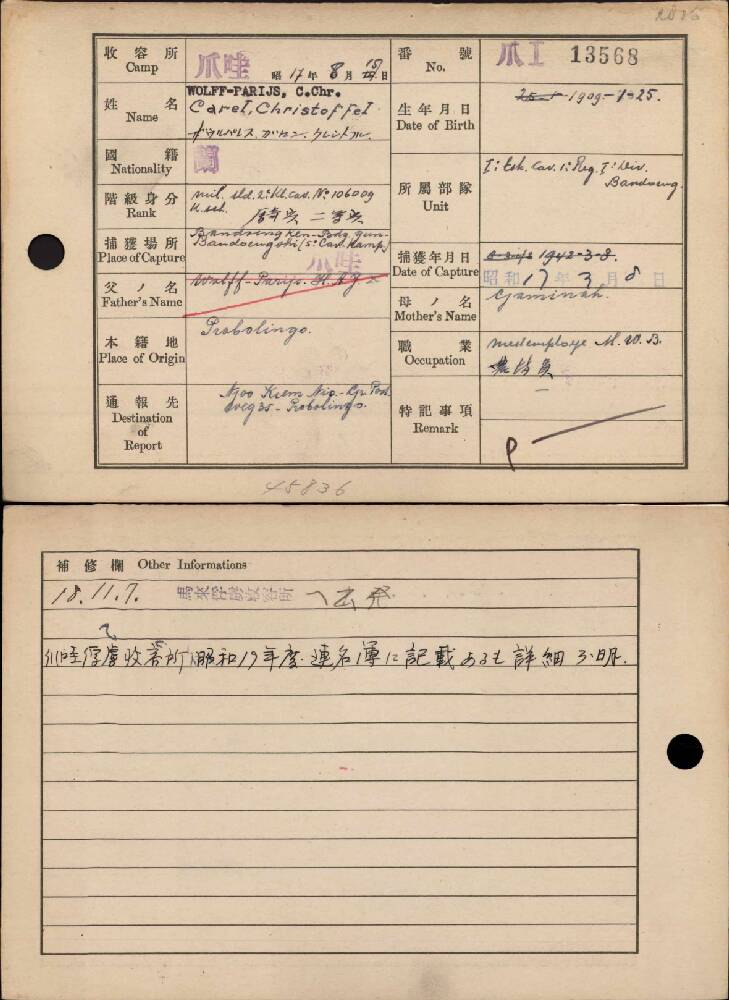 收容所
Camp
爪哇
昭 17年 8月 15日
番號
No.
爪I 13568
姓名
Name
WOLFF-PARIJS, C.Chr.
Carel, Christoffel
生年月日
Date of Birth
1909-1-25.
國籍
Nationality
蘭
階級身分
Rank
mil. sld. 2e kl. cav. No. 106009
所屬部隊
Unit
I: Esk. Cav. 1e Reg. I: Div.
Bandoeng.
捕獲場所
Place of Capture
Bandoeng ken-Bdg gun-
Bandoeng shi (5e Cav. Kamp)
爪哇
捕獲年月日
Date of Capture
1942-3-8.
昭和17年3月8日
父ノ名
Father's Name
Wolff-Parijs.
母ノ名
Mother's Name
Djaminah.
本籍地
Place of Origin
Probolingo.
職業
Occupation
M. W. B.
通報先
Destination
of
Report
Njoo Kiem Nio - Gr. Post
weg 35 - Probolingo.
特記事項
Remark
45836
補修欄 Other Informations
18.11.7. 馬來俘虜收容所 ヘ出発
爪哇俘虜收容所 昭和17年度 連名簿ニ記載あるも詳細不明.